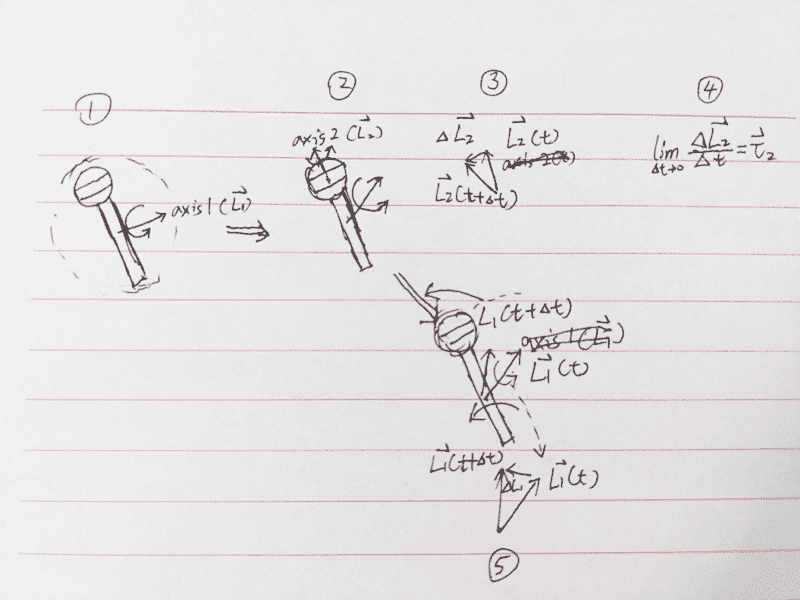 ①
axis1 (L⃗₁)
②
axis2 (L⃗₂)
③
ΔL⃗₂ L⃗₂(t)
axis2(t)
L⃗₂(t+Δt)
④
lim Δt→0 ΔL⃗₂/Δt = τ⃗₂
L₁(t+Δt)
axis1(L⃗₁)
L⃗₁(t)
L⃗₁(t+Δt)
ΔL₁ L⃗₁(t)
⑤